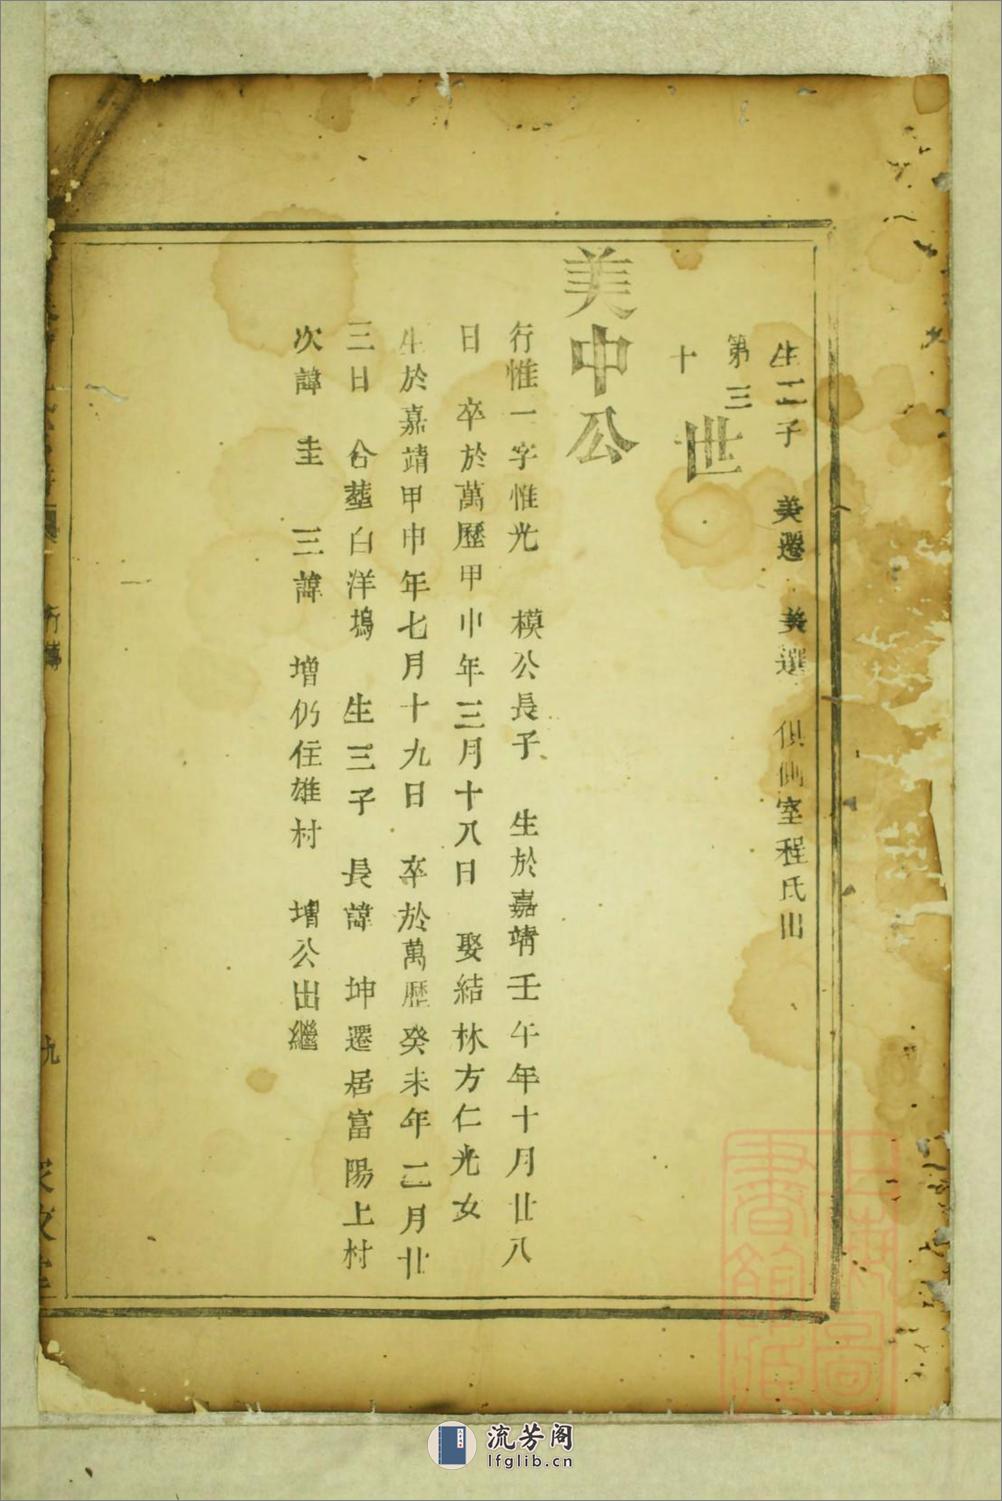 生二子 美遷 美選 俱側室程氏出
第三
十世
美中公
行惟一字惟光 模公長子 生於嘉靖壬午年十月廿八
日 卒於萬歷甲申年三月十八日 娶結林方仁光女
生於嘉靖甲申年七月十九日 卒於萬歷癸未年二月廿
三日 合塟白洋塢 生三子 長諱 坤遷居富陽上村
次諱 圭 三諱 增仍住雄村 增公出繼
行傳
九
上海圖書館藏
流芳阁
lfglib.cn